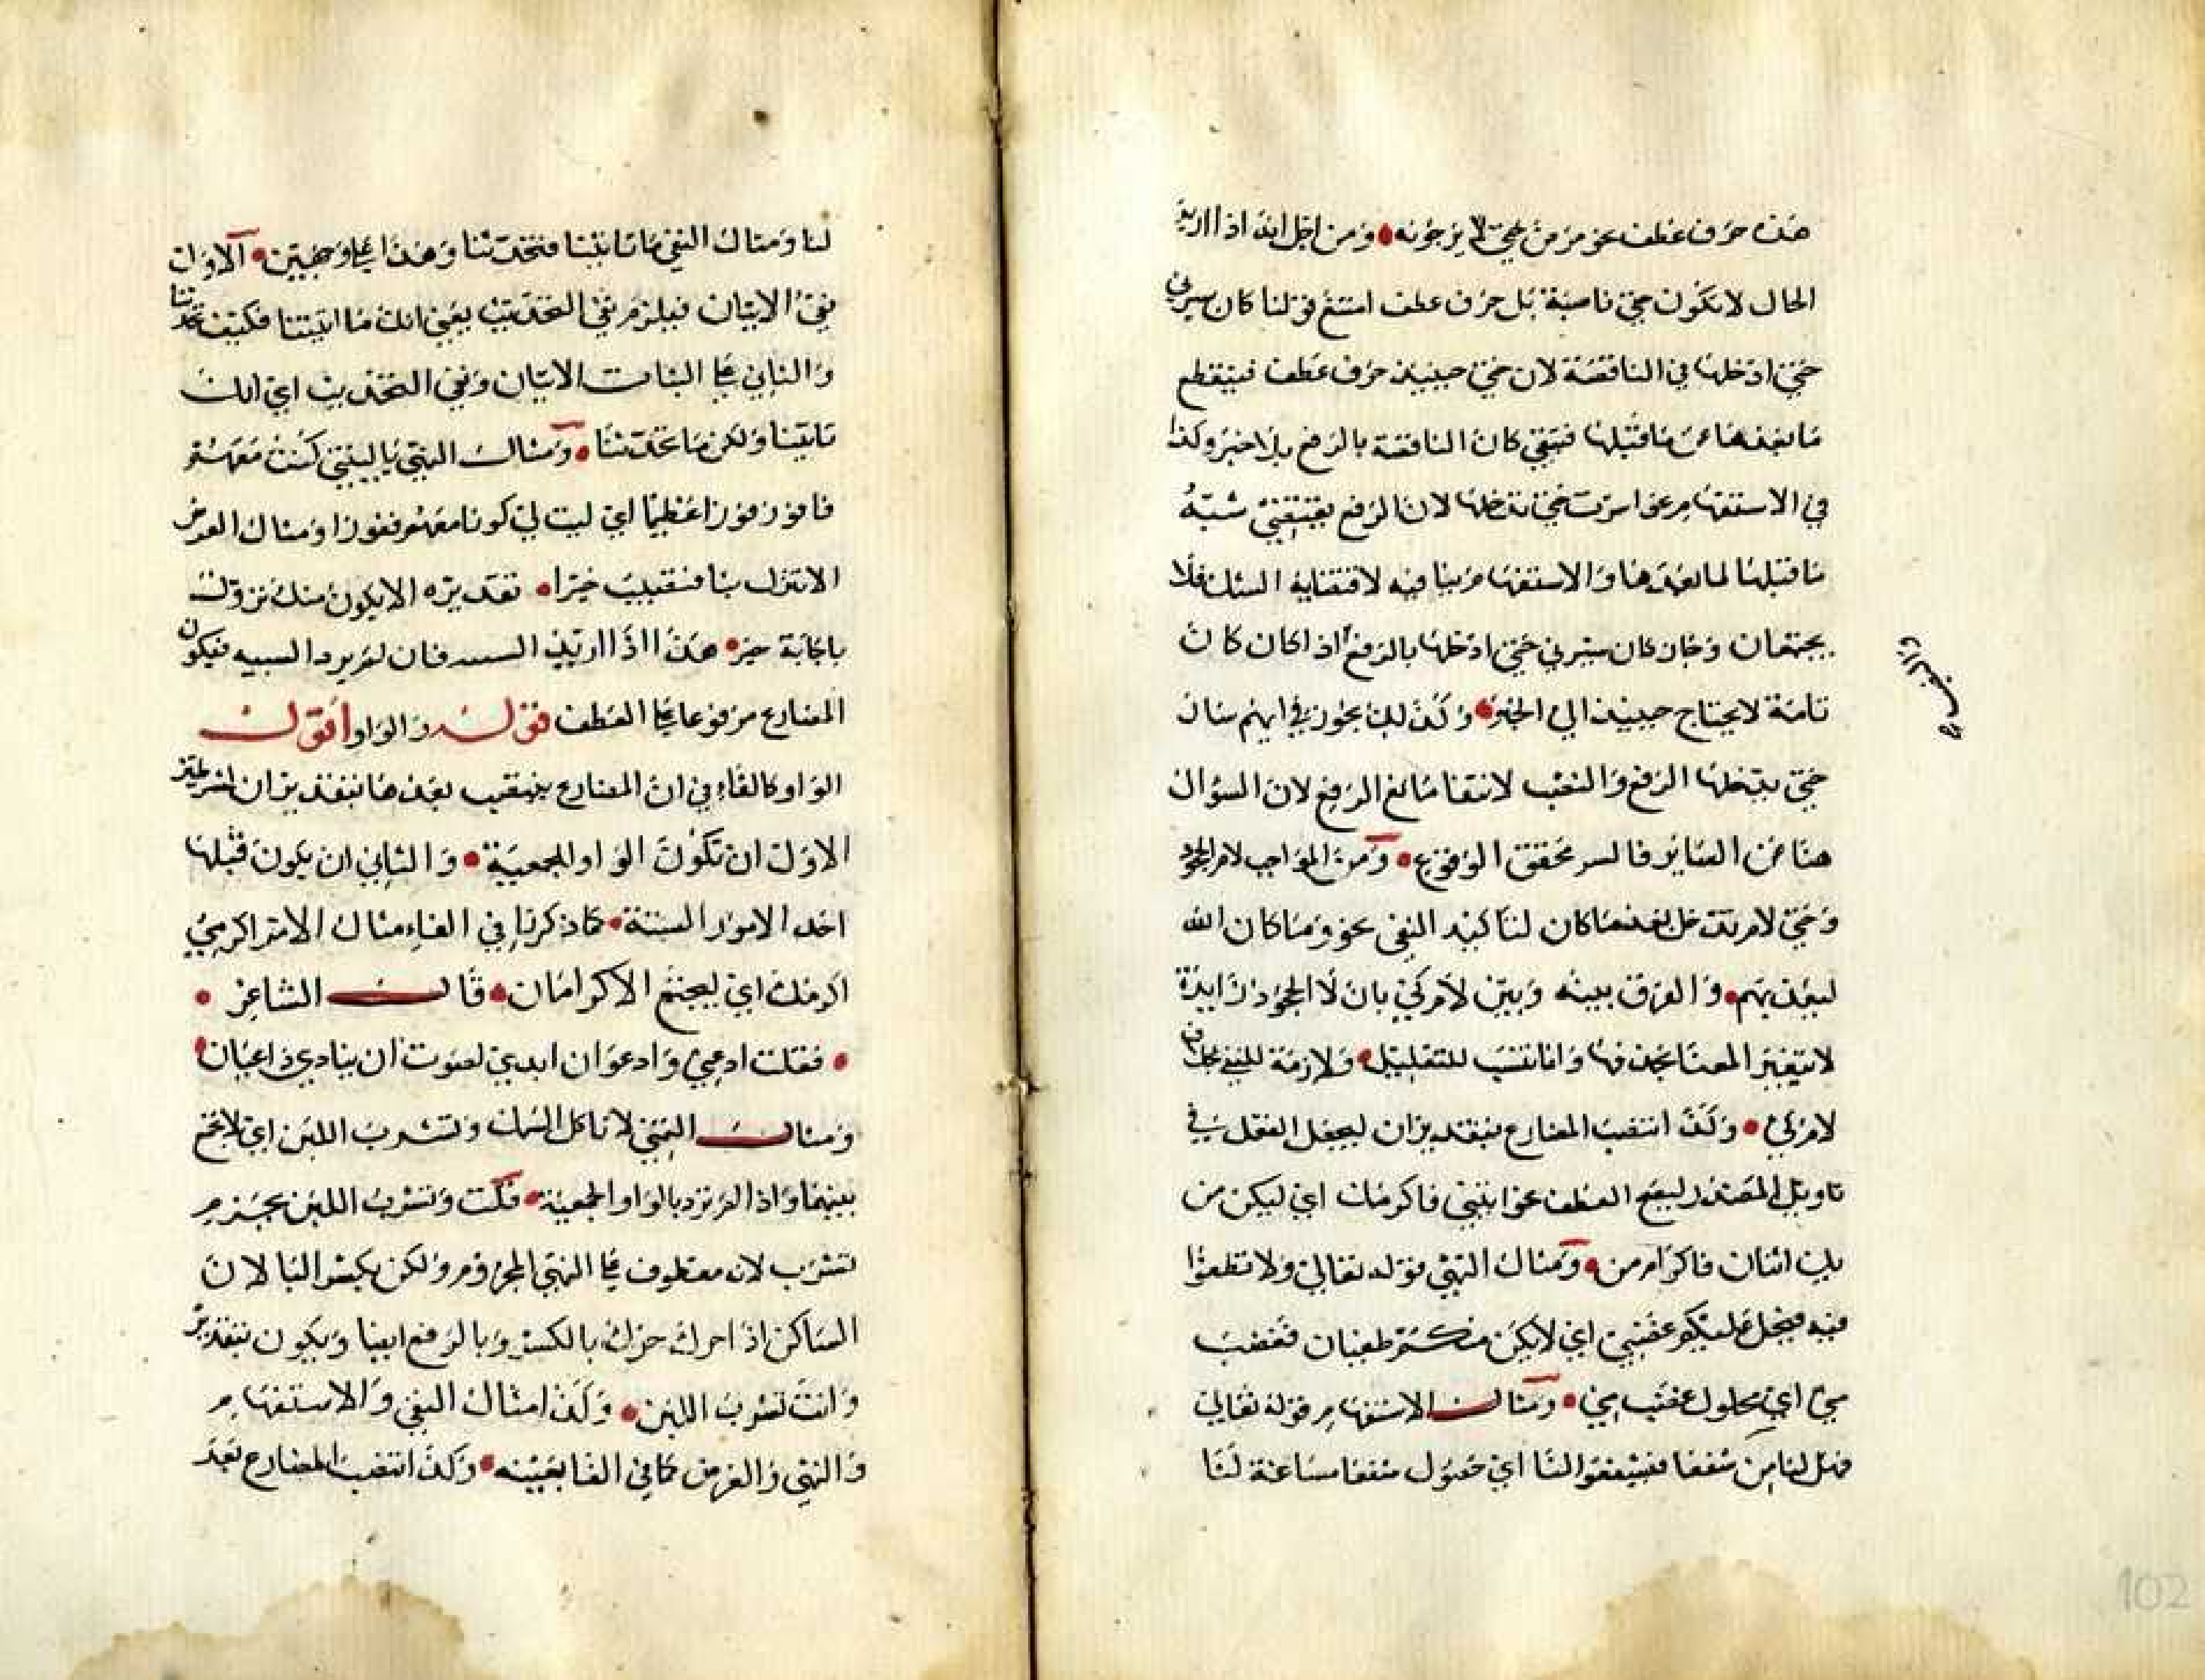 هذه حرف عطف نحو مرض حتى لا يرجونه • ومن اجل انه اذا اريد
الحال لا تكون حتى ناصبة بل حرف عطف امتنع قولنا كان سيري
حتى ادخلها في الناقصة لان حتى حينيذ حرف عطف فينقطع
ما بعدها عن ما قبلها فبقي كان الناقصة بالرفع بلا خبر وكذا
في الاستفهام نحو اسرت حتى تدخلها لان الرفع يقتضي
ما قبلها لما بعدها والاستفهام ينافيه لاقتضايه الشك فلا
يجتمعان وجاز كان سيري حتى ادخلها بالرفع اذا كان كان
تامة لا يحتاج حينيذ الى الخبر • وكذلك يجوز في ايهم سار
حتى يدخلها الرفع والنصب لانتفا مانع الرفع لان السؤال
هنا عن الساير فالسير محقق الوقوع • ومن المواجب لام الجحود
وهي لام تدخل بعد ما كان لتاكيد النفي نحو وما كان الله
ليعذبهم • والفرق بينه وبين لام كي بان لا الجحود زايدة
لا يتغير المعنا بحذفها وانما تنتصب للتقليل • ولازمة للنفي بخلاف
لام كي • وكذا انتصب المضارع بتقدير ان ليجعل الفعل في
تاويل المصدر ليصح العطف نحو ايتني فاكرمك اي ليكن من
بك اتيان فاكرام من • ومثال النهي قوله تعالى ولا تطغوا
فيه فيحل عليكم غضبي اي لا يكن منكم طغيان فغضب
مني اي حلول غضب مني • ومثال الاستفهام قوله تعالى
فهل لنا من شفعا فيشفعوا لنا اي حصول شفعا لنا
لنا ومثال النفي ما تاتينا فتحدثنا وهذا على وجهين • الاول
نفي الاتيان فيلزم نفي التحديث يعني انك ما اتيتنا فكيف تحدثنا
والثاني على اثبات الاتيان ونفي التحديث اي انك
تاتينا ولكن ما تحدثنا • ومثال التمني يا ليتني كنت معهم
فافوز فوزا عظيما اي ليت لي كونا معهم ففوزا ومثال العرض
الا تنزل بنا فتصيب خيرا • تقديره الا يكون منك نزول
باصابة خير • هذا اذا اريد السببية فان لم يرد السببية فيكون
المضارع مرفوعا على العطف قوله والواو اقول
الواو كالفاء في ان المضارع ينتصب بعدها بتقدير ان بشرطين
الاول ان تكون الواو للجمعية • والثاني ان يكون قبلها
احد الامور الستة • كما ذكرنا في الفاء مثال الامر اكرمني
اكرمك اي ليجتمع الاكرامان • قال الشاعر •
• فقلت ادعي وادعو ان اندي لصوت ان ينادي داعيان •
ومثال النهي لا تاكل السمك وتشرب اللبن اي لا تجمع
بينهما واذا لم ترد بالواو الجمعية • قلت وتشرب اللبن بجزم
تشرب لانه معطوف على النهي المجزوم ولكن بكسر البا لان
الساكن اذا حرك حرك بالكسر وبالرفع ايضا ويكون بتقدير
وانت تشرب اللبن • وكذا مثال النفي والاستفهام
والتمني والعرض كما في الفا بعينه • وكذا انتصب المضارع بعد
102